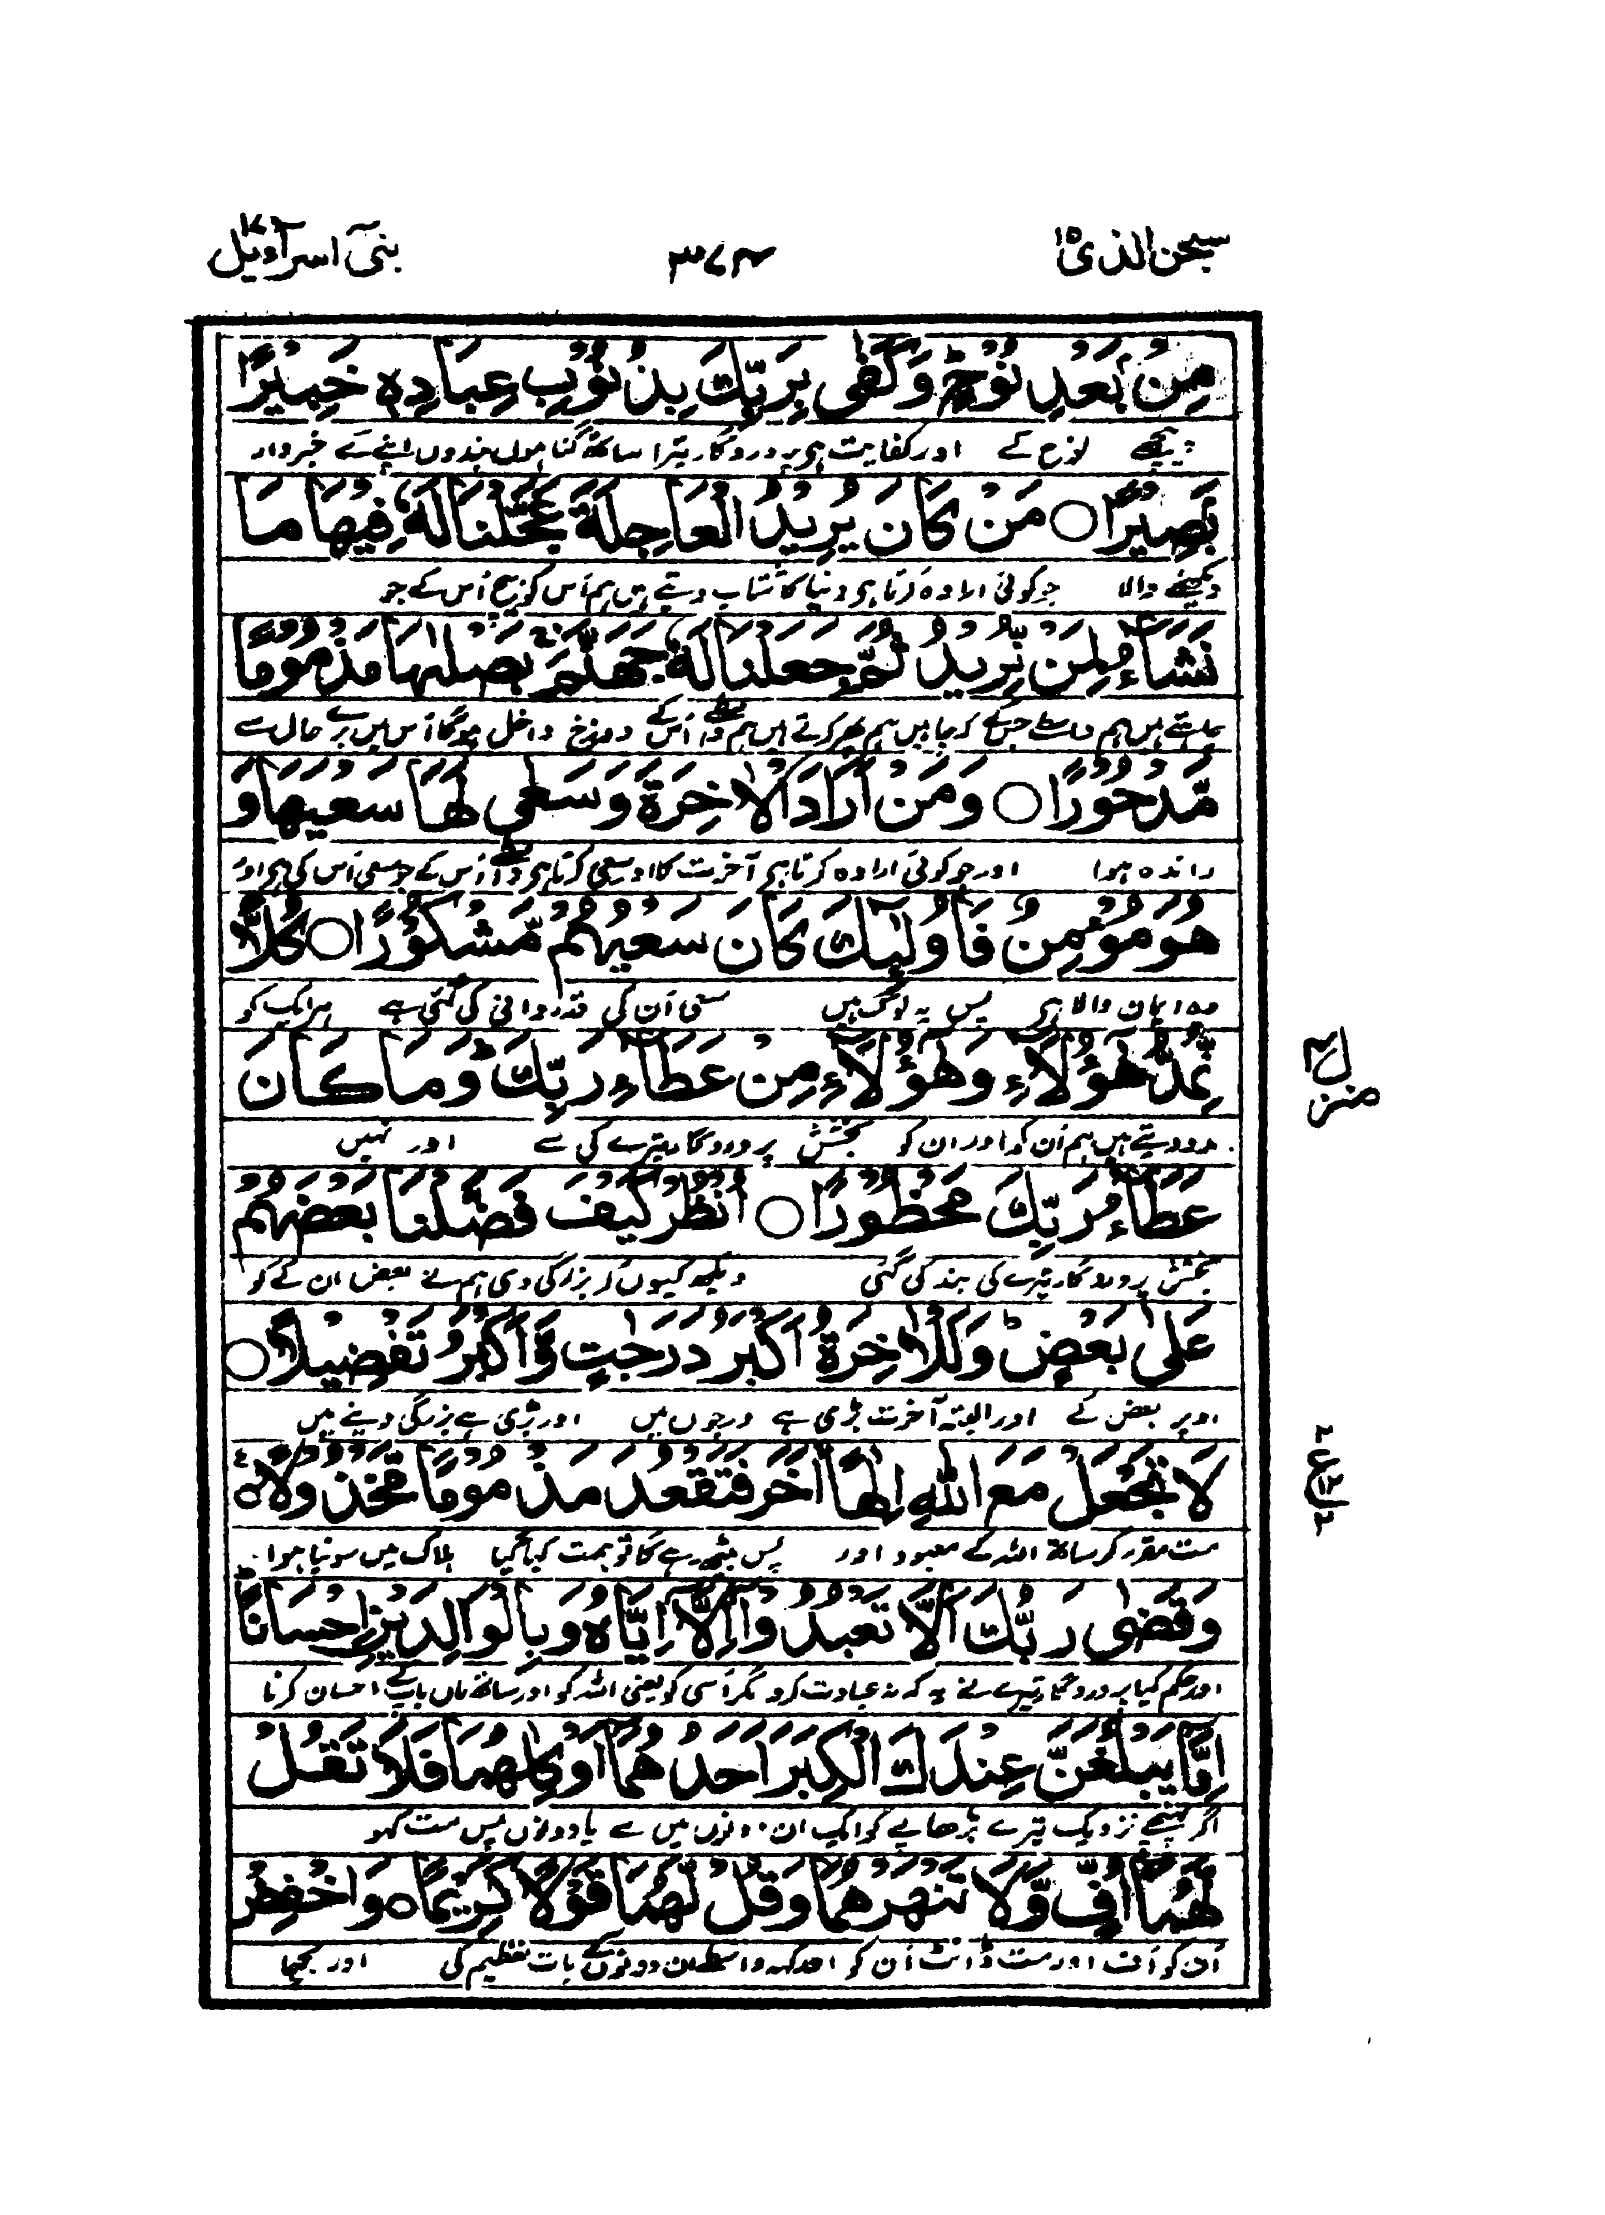 سبحن الذی ١٥
٣٧٤
بنی اسرآءیل ١٧
مِنْۢ بَعْدِ نُوْحٍ ؕ وَكَفٰى بِرَبِّكَ بِذُنُوْبِ عِبَادِهٖ خَبِيْرًۢا
پیچھے نوح کے اور کفایت ہی پروردگار تیرا ساتھ گناہوں بندوں اپنے کے خبردار
بَصِيْرًا ○ مَنْ كَانَ يُرِيْدُ الْعَاجِلَةَ عَجَّلْنَا لَهٗ فِيْهَا مَا
دیکھنے والا جو کوئی ارادہ کرتا ہی دنیا کا شتاب دیتے ہیں ہم اُس کو بیچ اُس کے جو
نَشَآءُ لِمَنْ نُّرِيْدُ ثُمَّ جَعَلْنَا لَهٗ جَهَنَّمَ ۚ يَصْلٰىهَا مَذْمُوْمًا
چاہتے ہیں ہم واسطے جس کے کہ چاہیں ہم پھر کرتے ہیں ہم واسطے اُس کے دوزخ داخل ہوگا اُس میں بُرے حال سے
مَّدْحُوْرًا ○ وَمَنْ اَرَادَ الْاٰخِرَةَ وَسَعٰى لَهَا سَعْيَهَا وَ
راندہ ہوا اور جو کوئی ارادہ کرتا ہی آخرت کا اور سعی کرتا ہی واسطے اُس کے جو سعی اُس کی ہی اور
هُوَ مُؤْمِنٌ فَاُولٰٓئِكَ كَانَ سَعْيُهُمْ مَّشْكُوْرًا ○ كُلًّا
وہ ایمان والا ہی پس یہ لوگ ہیں سعی اُن کی قدردانی کی گئی ہے ہر ایک کو
نُّمِدُّ هٰٓؤُلَآءِ وَهٰٓؤُلَآءِ مِنْ عَطَآءِ رَبِّكَ ؕ وَمَا كَانَ
مدد دیتے ہیں ہم اُن کو اور ان کو بخشش پروردگار تیرے کی سے اور نہیں
عَطَآءُ رَبِّكَ مَحْظُوْرًا ○ اُنْظُرْ كَيْفَ فَضَّلْنَا بَعْضَهُمْ
بخشش پروردگار تیرے کی بند کی گئی دیکھ کیوں کر بزرگی دی ہم نے بعض ان کے کو
عَلٰى بَعْضٍ ؕ وَلَلْاٰخِرَةُ اَكْبَرُ دَرَجٰتٍ وَّاَكْبَرُ تَفْضِيْلًا ○
اوپر بعض کے اور البتہ آخرت بڑی ہے درجوں میں اور بڑی ہے بزرگی دینے میں
لَا تَجْعَلْ مَعَ اللّٰهِ اِلٰهًا اٰخَرَ فَتَقْعُدَ مَذْمُوْمًا مَّخْذُوْلًا ○
مت مقرر کر ساتھ اللہ کے معبود اور پس بیٹھ رہے گا تو مذمت کیا گیا ہلاک میں سونپا ہوا
وَقَضٰى رَبُّكَ اَلَّا تَعْبُدُوْٓا اِلَّآ اِيَّاهُ وَبِالْوَالِدَيْنِ اِحْسَانًا ؕ
اور حکم کیا پروردگار تیرے نے یہ کہ نہ عبادت کرو مگر اُسی کو یعنی اللہ کو اور ساتھ ماں باپ کے احسان کرنا
اِمَّا يَبْلُغَنَّ عِنْدَكَ الْكِبَرَ اَحَدُهُمَآ اَوْ كِلٰهُمَا فَلَا تَقُلْ
اگر پہنچے نزدیک تیرے بڑھاپے کو ایک ان دونوں میں سے یا دونوں پس مت کہو
لَّهُمَآ اُفٍّ وَّلَا تَنْهَرْهُمَا وَقُلْ لَّهُمَا قَوْلًا كَرِيْمًا ○ وَاخْفِضْ
اُن کو اُف اور مت ڈانٹ اُن کو اور کہہ واسطے ان دونوں کے بات تعظیم کی اور بچھا
منزل ٤
٢
ع
١٢
٢